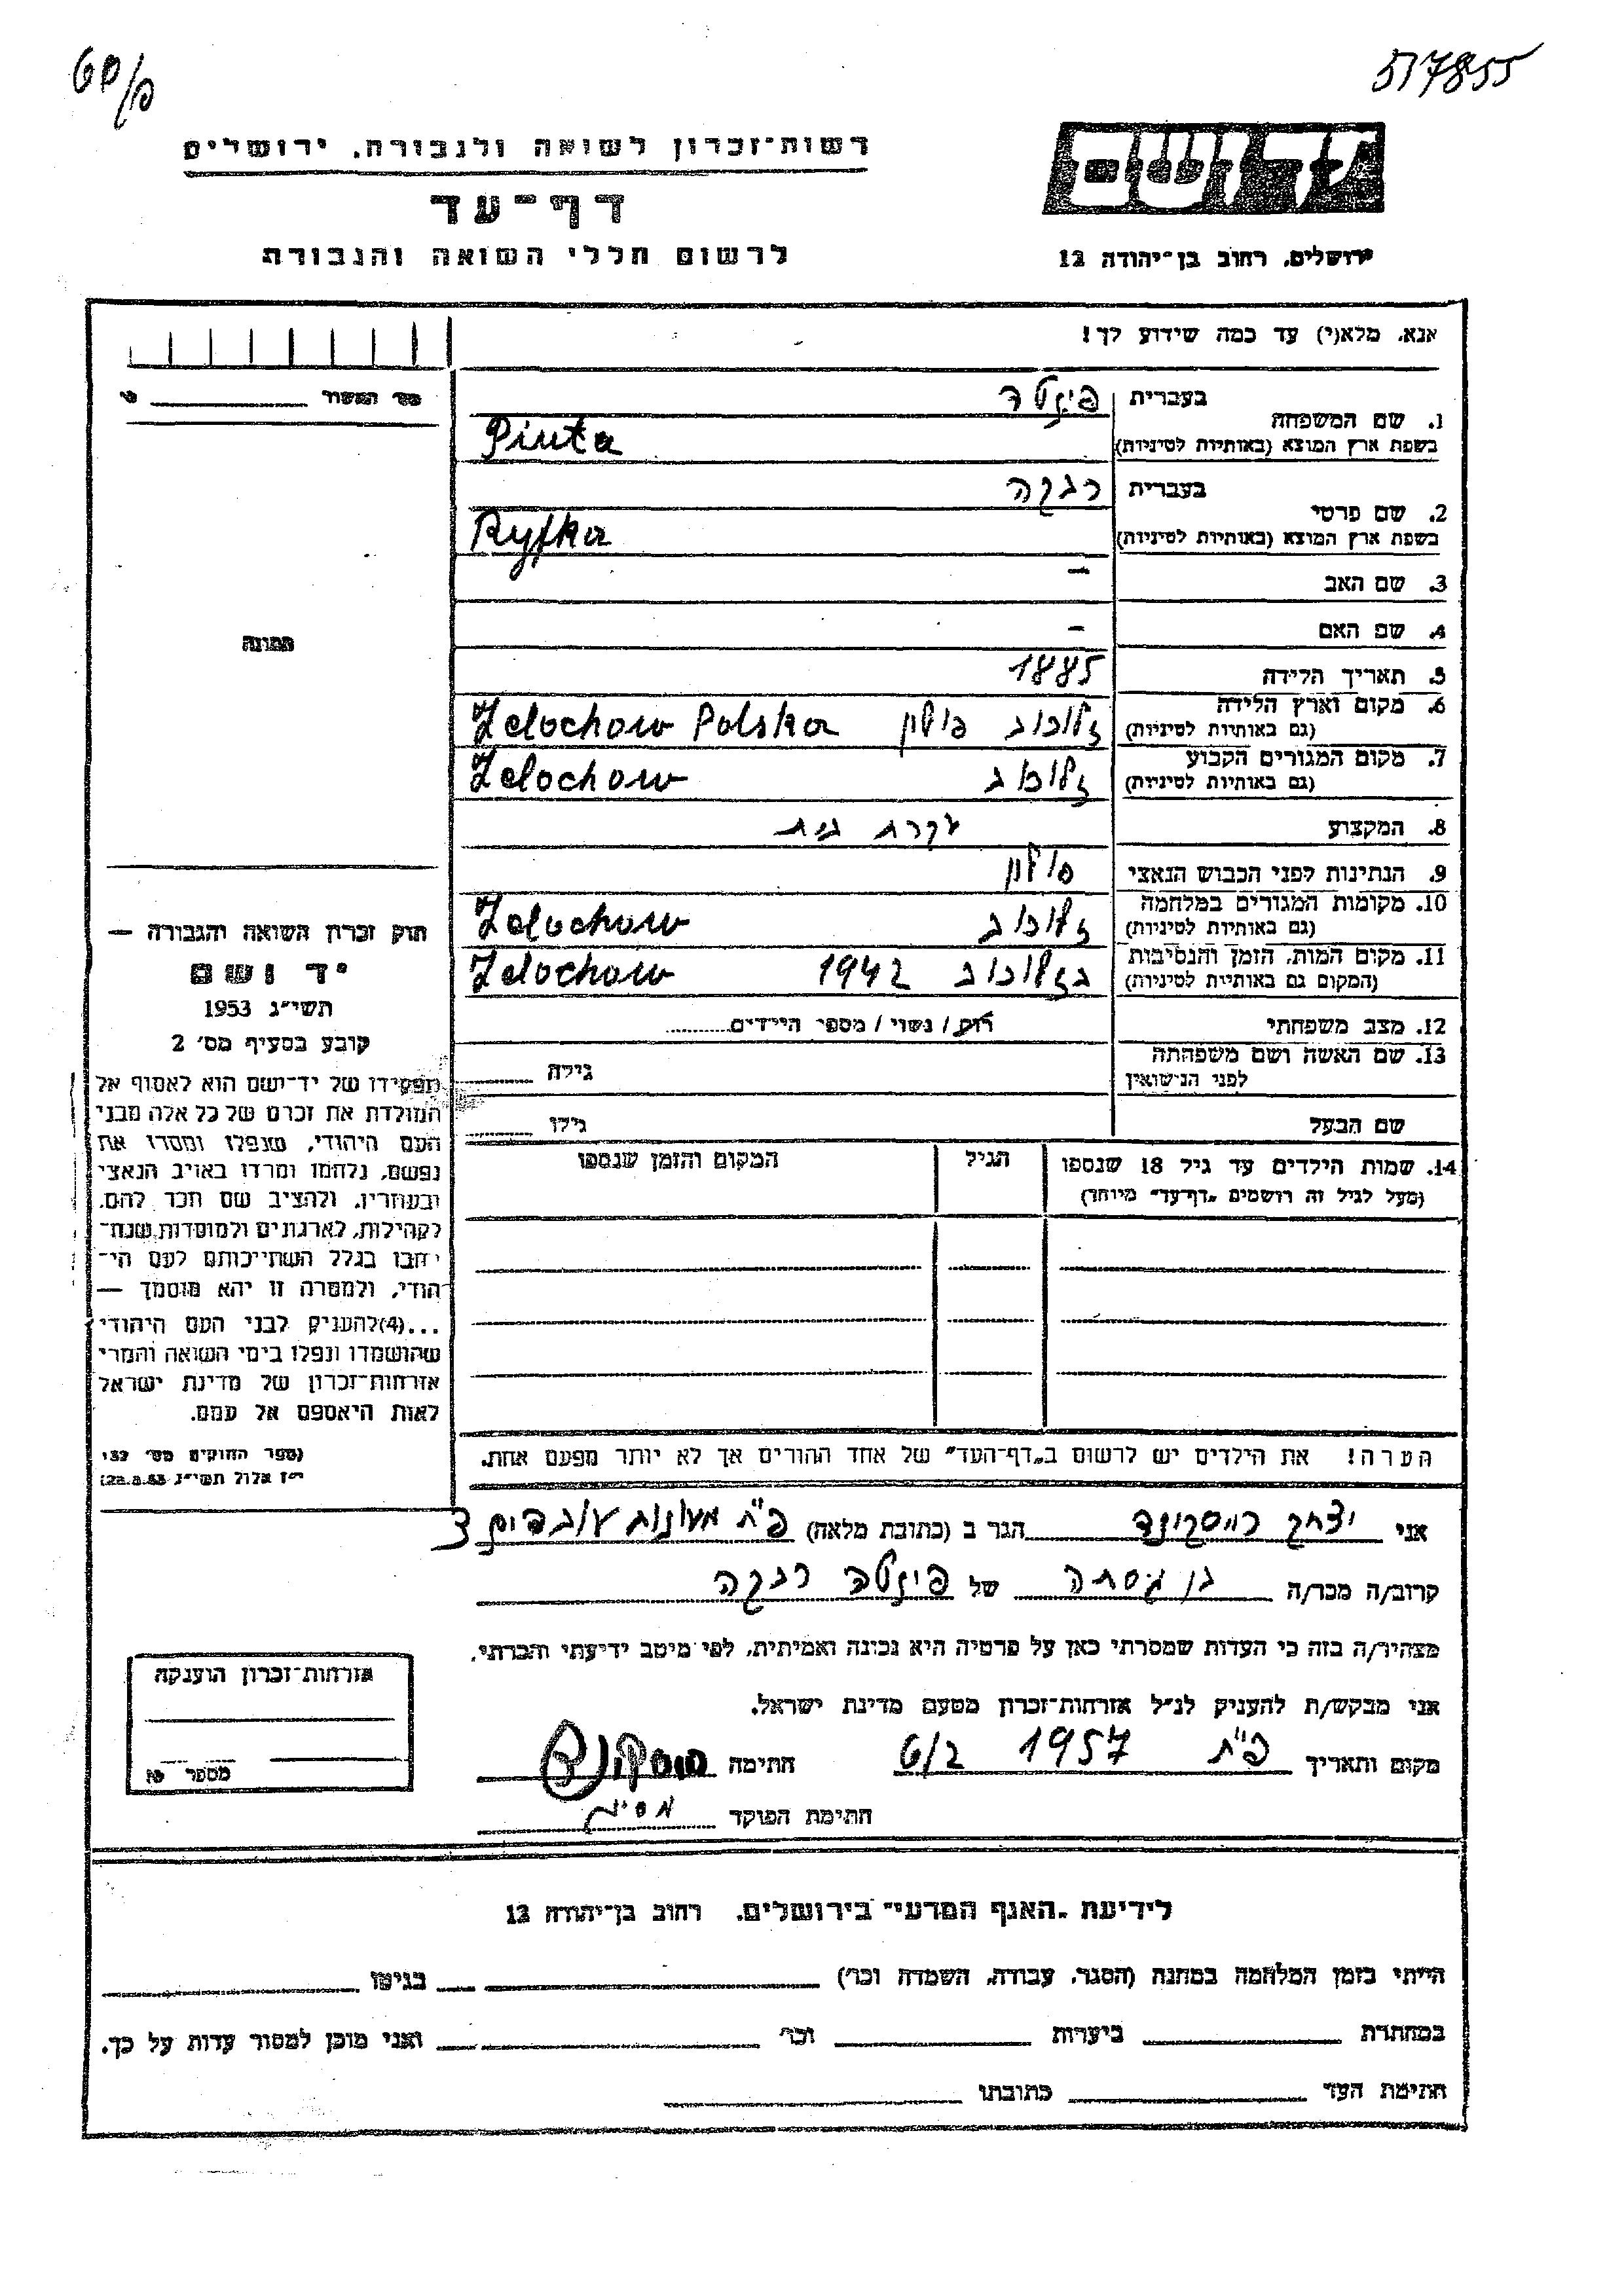 517855
60/פ
רשות־זכרון לשואה ולגבורה, ירושלים
דף־עד
לרשום חללי השואה והגבורה
ירושלים, רחוב בן־יהודה 12
אנא, מלא(י) עד כמה שידוע לך!
1. שם המשפחה
בעברית פינטה
בשפת ארץ המוצא (באותיות לטיניות) Pinta
2. שם פרטי
בעברית רבקה
בשפת ארץ המוצא (באותיות לטיניות) Ryfka
3. שם האב –
4. שם האם –
5. תאריך הלידה 1885
6. מקום וארץ הלידה
(גם באותיות לטיניות) זלוכוב פולין Zelochow Polska
7. מקום המגורים הקבוע
(גם באותיות לטיניות) זלוכוב Zelochow
8. המקצוע עקרת בית
9. הנתינות לפני הכבוש הנאצי פולין
10. מקומות המגורים במלחמה
(גם באותיות לטיניות) זלוכוב Zelochow
11. מקום המות, הזמן והנסיבות
(המקום גם באותיות לטיניות) בזלוכוב 1942 Zelochow
12. מצב משפחתי רוק / נשוי / מספר הילדים
13. שם האשה ושם משפחתה
לפני הנישואין גילה
שם הבעל גילו
14. שמות הילדים עד גיל 18 שנספו
(מעל לגיל זה רושמים „דף־עד" מיוחד)
הגיל
המקום והזמן שנספו
הערה! את הילדים יש לרשום ב„דף־העד" של אחד ההורים אך לא יותר מפעם אחת.
מס' המשור
תמונה
חוק זכרון השואה והגבורה —
יד ושם
תשי"ג 1953
קובע בסעיף מס' 2
תפקידו של יד־ושם הוא לאסוף אל
המולדת את זכרם של כל אלה מבני
העם היהודי, שנפלו ומסרו את
נפשם, נלחמו ומרדו באויב הנאצי
ובעוזריו, ולהציב שם וזכר להם,
לקהילות, לארגונים ולמוסדות שנח־
רבו בגלל השתייכותם לעם הי־
הודי, ולמטרה זו יהא מוסמך —
...(4)להעניק לבני העם היהודי
שהושמדו ונפלו בימי השואה והמרי
אזרחות־זכרון של מדינת ישראל
לאות היאספם אל עמם.
(ספר החוקים מס' 132
י"ז אלול תשי"ג 28.8.53)
אני יצחק רויסקינד הגר ב (כתובת מלאה) פ"ת מעונות עובדים 3
קרוב/ה מכר/ה בן גיסתה של פינטה רבקה
מצהיר/ה בזה כי העדות שמסרתי כאן על פרטיה היא נכונה ואמיתית, לפי מיטב ידיעתי והכרתי.
אני מבקש/ת להעניק לנ"ל אזרחות־זכרון מטעם מדינת ישראל.
מקום ותאריך פ"ת 1957 6/2 חתימה
חתימת הפוקד
אזרחות־זכרון הוענקה
מספר
לידיעת „האגף המדעי" בירושלים, רחוב בן־יהודה 12
הייתי בזמן המלחמה במחנה (הסגר, עבודה, השמדה וכו') בגיטו
במחתרת ביערות וכו' ואני מוכן למסור עדות על כך.
חתימת העד כתובתו